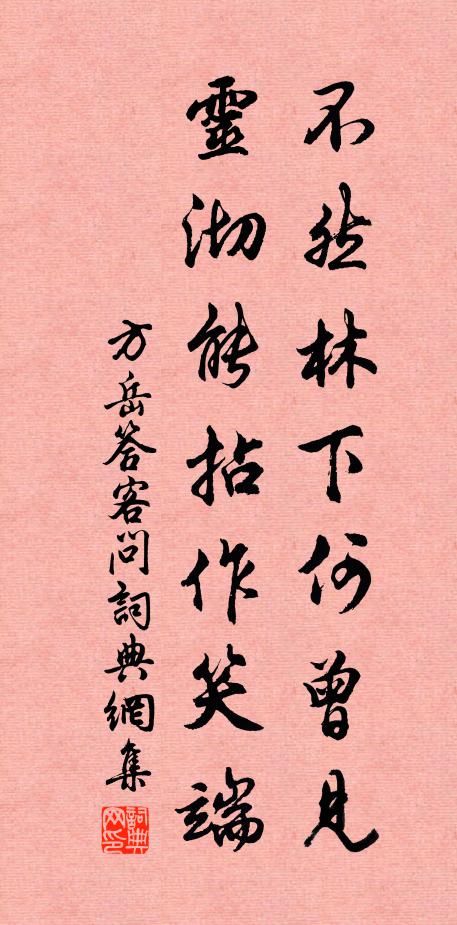 不然林下何曾見
靈沏能拈作笑端
方岳答客問詞典網集
詞典網印